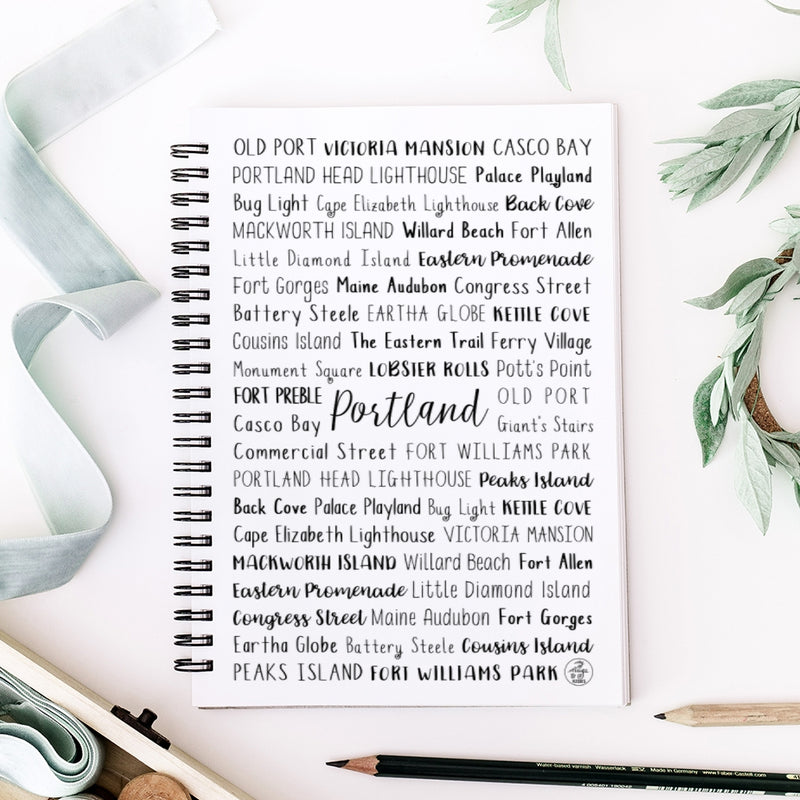 OLD PORT VICTORIA MANSION CASCO BAY
PORTLAND HEAD LIGHTHOUSE Palace Playland
Bug Light Cape Elizabeth Lighthouse Back Cove
MACKWORTH ISLAND Willard Beach Fort Allen
Little Diamond Island Eastern Promenade
Fort Gorges Maine Audubon Congress Street
Battery Steele EARTHA GLOBE KETTLE COVE
Cousins Island The Eastern Trail Ferry Village
Monument Square LOBSTER ROLLS Pott's Point
FORT PREBLE Portland OLD PORT
Casco Bay Giant's Stairs
Commercial Street FORT WILLIAMS PARK
PORTLAND HEAD LIGHTHOUSE Peaks Island
Back Cove Palace Playland Bug Light KETTLE COVE
Cape Elizabeth Lighthouse VICTORIA MANSION
MACKWORTH ISLAND Willard Beach Fort Allen
Eastern Promenade Little Diamond Island
Congress Street Maine Audubon Fort Gorges
Eartha Globe Battery Steele Cousins Island
PEAKS ISLAND FORT WILLIAMS PARK
Water-based varnish Wasserlack Made in Germany www.Faber-Castell.com